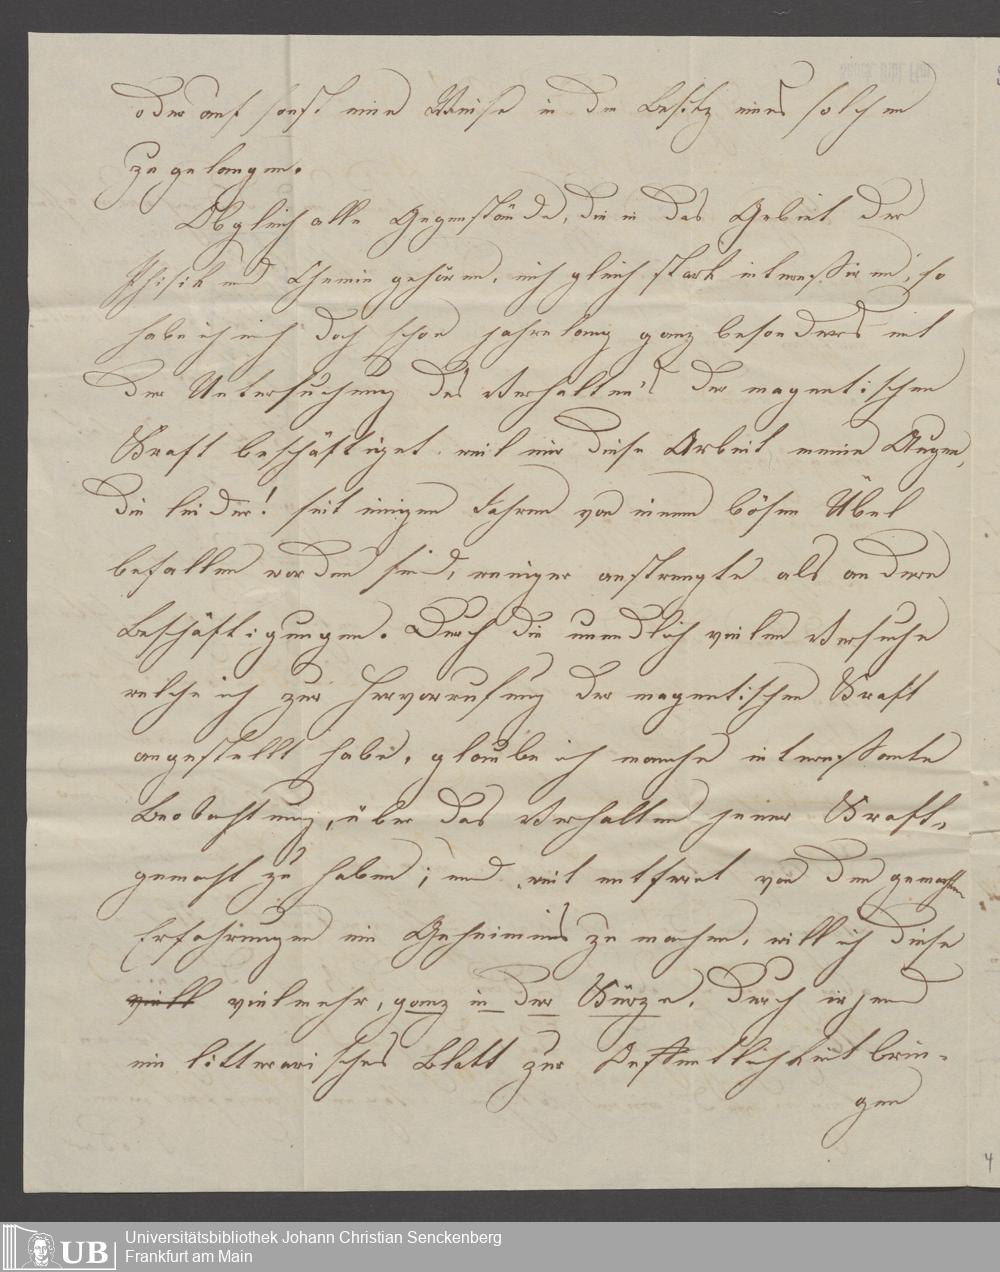 oder auf sonst eine Weise in den Besitz eines solchen
zu gelangen.
Obgleich alle Gegenstände, die in das Gebiet der
Phisik und Chemie gehören, mich gleich stark interessiren, so
habe ich mich doch schon jahrelang ganz besonders mit
der Untersuchung des Verhalten's der magnetischen
Kraft beschäftiget, weil mir diese Arbeit meine Augen,
die leider! seit einigen Jahren von einem bösen Übel
befallen worden sind, weniger anstrengte als andere
Beschäftigungen. Durch die unendlich vielen Versuche
welche ich zur Hervorrufung der magnetischen Kraft
angestellt habe, glaube ich manche interessante
Beobachtung, über das Verhalten jener Kraft,
gemacht zu haben; und weit entfernt von den gemachten
Erfahrungen ein Geheimnis zu machen, will ich diese
vielmehr, ganz in der Kürze, durch irgend
ein litterarisches Blatt zur Oeffentlichkeit brin-
gen
4
UB
Universitätsbibliothek Johann Christian Senckenberg
Frankfurt am Main